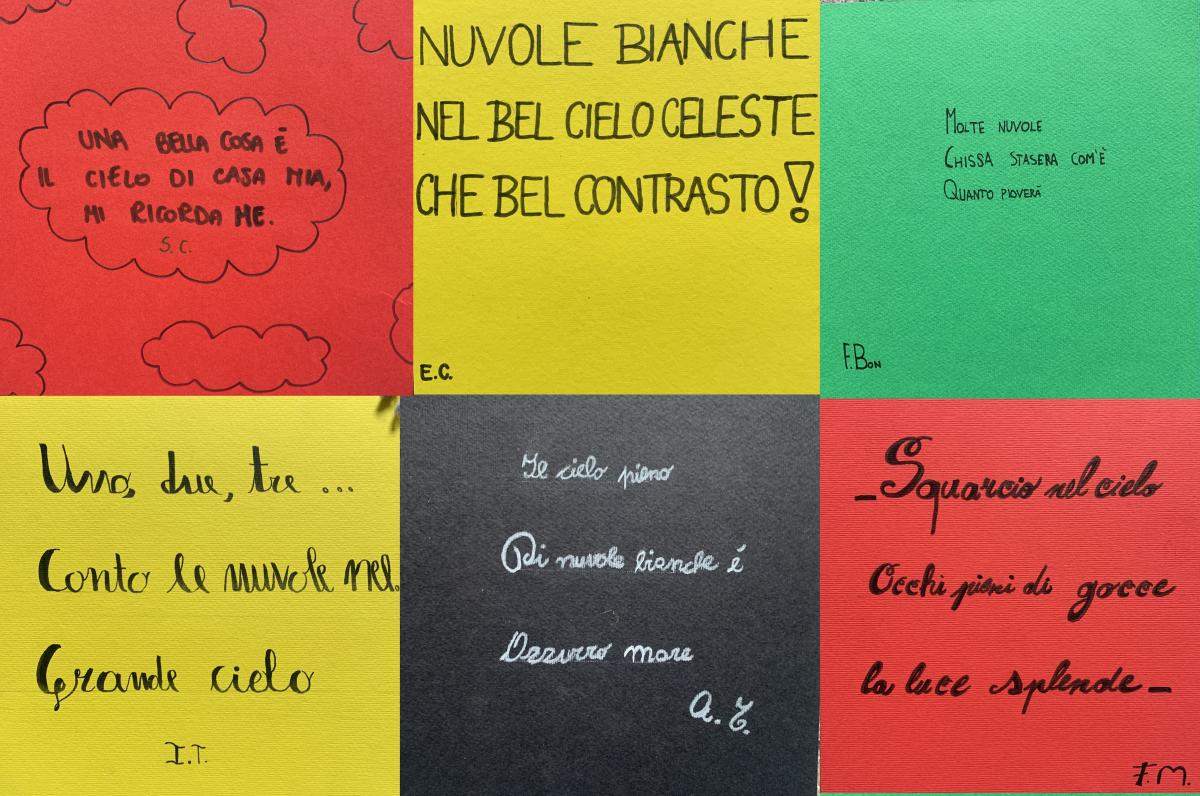 UNA BELLA COSA È
IL CIELO DI CASA MIA,
MI RICORDA ME.
S.C.
NUVOLE BIANCHE
NEL BEL CIELO CELESTE
CHE BEL CONTRASTO!
E.C.
MOLTE NUVOLE
CHISSÀ STASERA COM'È
QUANTO PIOVERÀ
F.BON
Uno, due, tre ...
Conto le nuvole nel.
Grande cielo
I.T.
Il cielo pieno
Di nuvole bianche é
Azzurro mare
A.T.
_Squarcio nel cielo
Occhi pieni di gocce
la luce splende_
F.M.